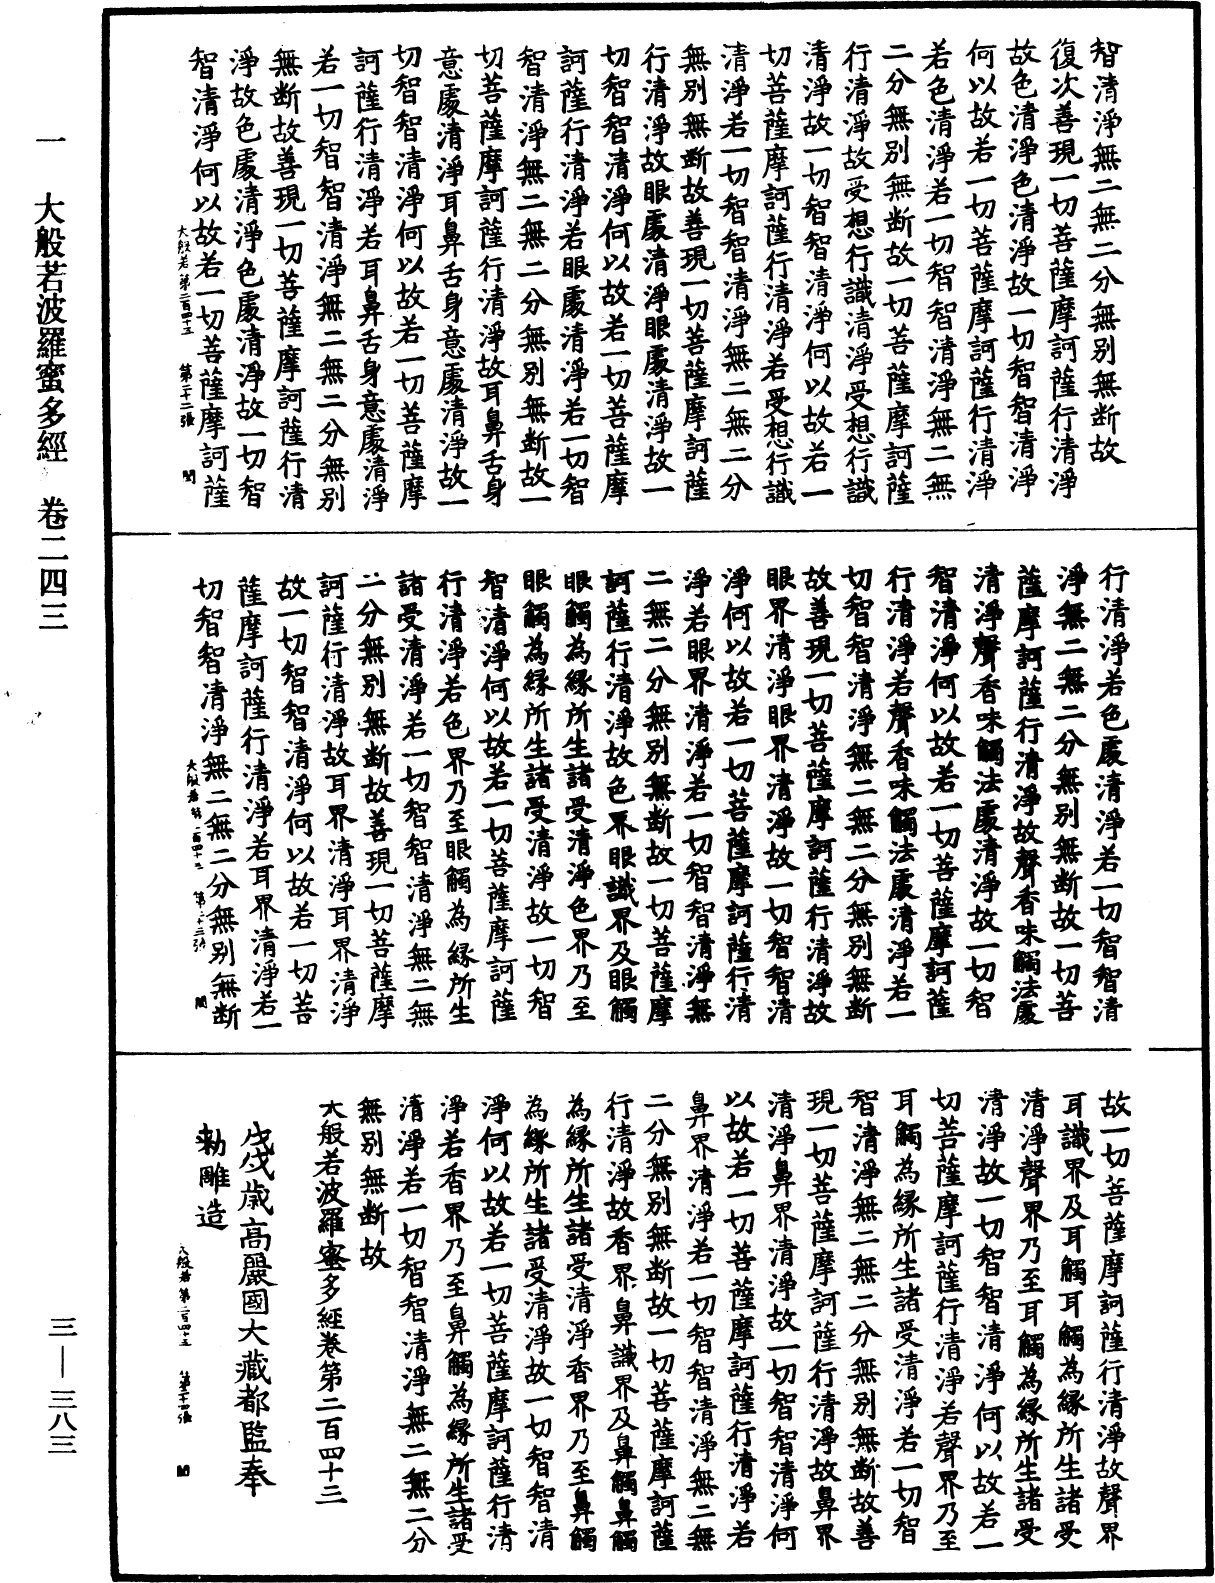 智清淨無二無二分無別無斷故
復次善現一切菩薩摩訶薩行清淨
故色清淨色清淨故一切智智清淨
何以故若一切菩薩摩訶薩行清淨
若色清淨若一切智智清淨無二無
二分無別無斷故一切菩薩摩訶薩
行清淨故受想行識清淨受想行識
清淨故一切智智清淨何以故若一
切菩薩摩訶薩行清淨若受想行識
清淨若一切智智清淨無二無二分
無別無斷故善現一切菩薩摩訶薩
行清淨故眼處清淨眼處清淨故一
切智智清淨何以故若一切菩薩摩
訶薩行清淨若眼處清淨若一切智
智清淨無二無二分無別無斷故一
切菩薩摩訶薩行清淨故耳鼻舌身
意處清淨耳鼻舌身意處清淨故一
切智智清淨何以故若一切菩薩摩
訶薩行清淨若耳鼻舌身意處清淨
若一切智智清淨無二無二分無別
無斷故善現一切菩薩摩訶薩行清
淨故色處清淨色處清淨故一切智
智清淨何以故若一切菩薩摩訶薩
大般若第二百四十三 第二十二張
行清淨若色處清淨若一切智智清
淨無二無二分無別無斷故一切菩
薩摩訶薩行清淨故聲香味觸法處
清淨聲香味觸法處清淨故一切智
智清淨何以故若一切菩薩摩訶薩
行清淨若聲香味觸法處清淨若一
切智智清淨無二無二分無別無斷
故善現一切菩薩摩訶薩行清淨故
眼界清淨眼界清淨故一切智智清
淨何以故若一切菩薩摩訶薩行清
淨若眼界清淨若一切智智清淨無
二無二分無別無斷故一切菩薩摩
訶薩行清淨故色界眼識界及眼觸
眼觸為緣所生諸受清淨色界乃至
眼觸為緣所生諸受清淨故一切智
智清淨何以故若一切菩薩摩訶薩
行清淨若色界乃至眼觸為緣所生
諸受清淨若一切智智清淨無二無
二分無別無斷故善現一切菩薩摩
訶薩行清淨故耳界清淨耳界清淨
故一切智智清淨何以故若一切菩
薩摩訶薩行清淨若耳界清淨若一
切智智清淨無二無二分無別無斷
大般若第二百四十三 第二十三張
故一切菩薩摩訶薩行清淨故聲界
耳識界及耳觸耳觸為緣所生諸受
清淨聲界乃至耳觸為緣所生諸受
清淨故一切智智清淨何以故若一
切菩薩摩訶薩行清淨若聲界乃至
耳觸為緣所生諸受清淨若一切智
智清淨無二無二分無別無斷故善
現一切菩薩摩訶薩行清淨故鼻界
清淨鼻界清淨故一切智智清淨何
以故若一切菩薩摩訶薩行清淨若
鼻界清淨若一切智智清淨無二無
二分無別無斷故一切菩薩摩訶薩
行清淨故香界鼻識界及鼻觸鼻觸
為緣所生諸受清淨香界乃至鼻觸
為緣所生諸受清淨故一切智智清
淨何以故若一切菩薩摩訶薩行清
淨若香界乃至鼻觸為緣所生諸受
清淨若一切智智清淨無二無二分
無別無斷故
大般若波羅蜜多經卷第二百四十三
戊戌歲高麗國大藏都監奉
勅雕造
大般若第二百四十三 第二十四張
一 大般若波羅蜜多經 卷二四三
三—三八三